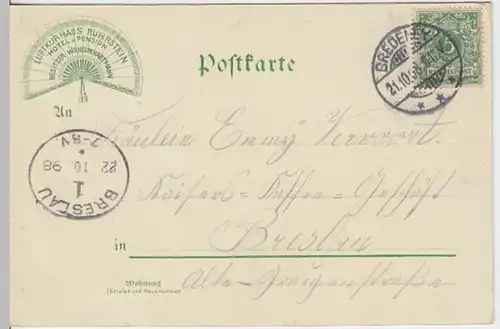 LUFTKURHAUS RUHRSTEIN
HOTEL u. PENSION
BESITZER: WILHELM HARTMANN
Postkarte
BREDENEY
21.10.98
An
Fräulein Emmy
7-8V.
22 10 98
1
BRESLAU
Kaiser's-Kaffee-Geschäft
in Breslau
Wohnung
(Straße und Hausnummer)
Alte-Graupenstraße